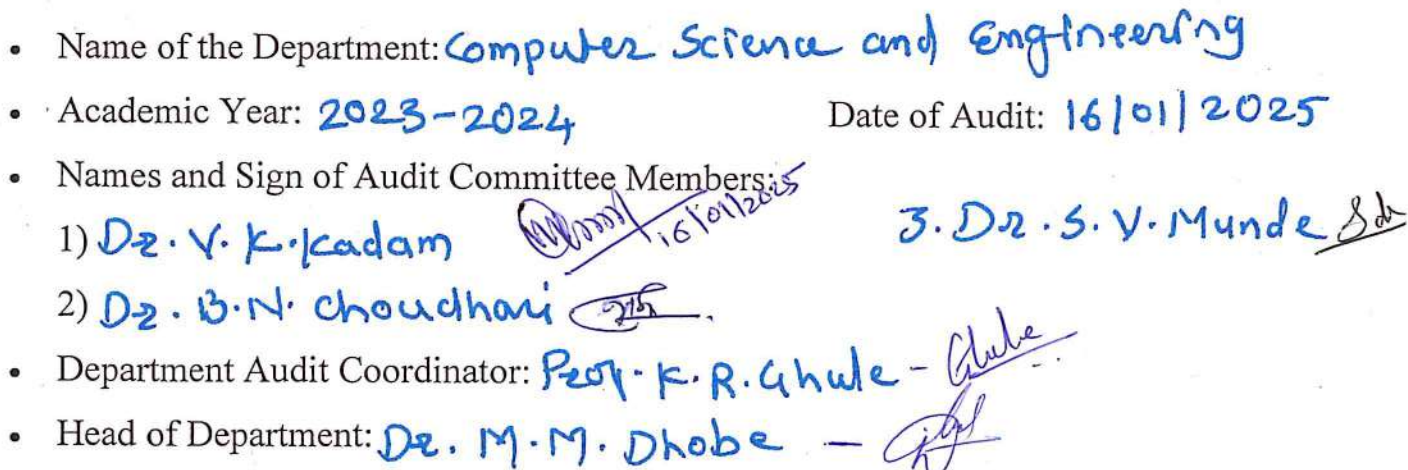 • Name of the Department: Computer Science and Engineering
• Academic Year: 2023-2024 Date of Audit: 16/01/2025
• Names and Sign of Audit Committee Members:
1) Dr. V. K. Kadam 16/01/2025 3. Dr. S. V. Munde
2) Dr. B. N. Choudhari
• Department Audit Coordinator: Prof. K. R. Ghule - Ghule
• Head of Department: Dr. M. M. Dhobe -